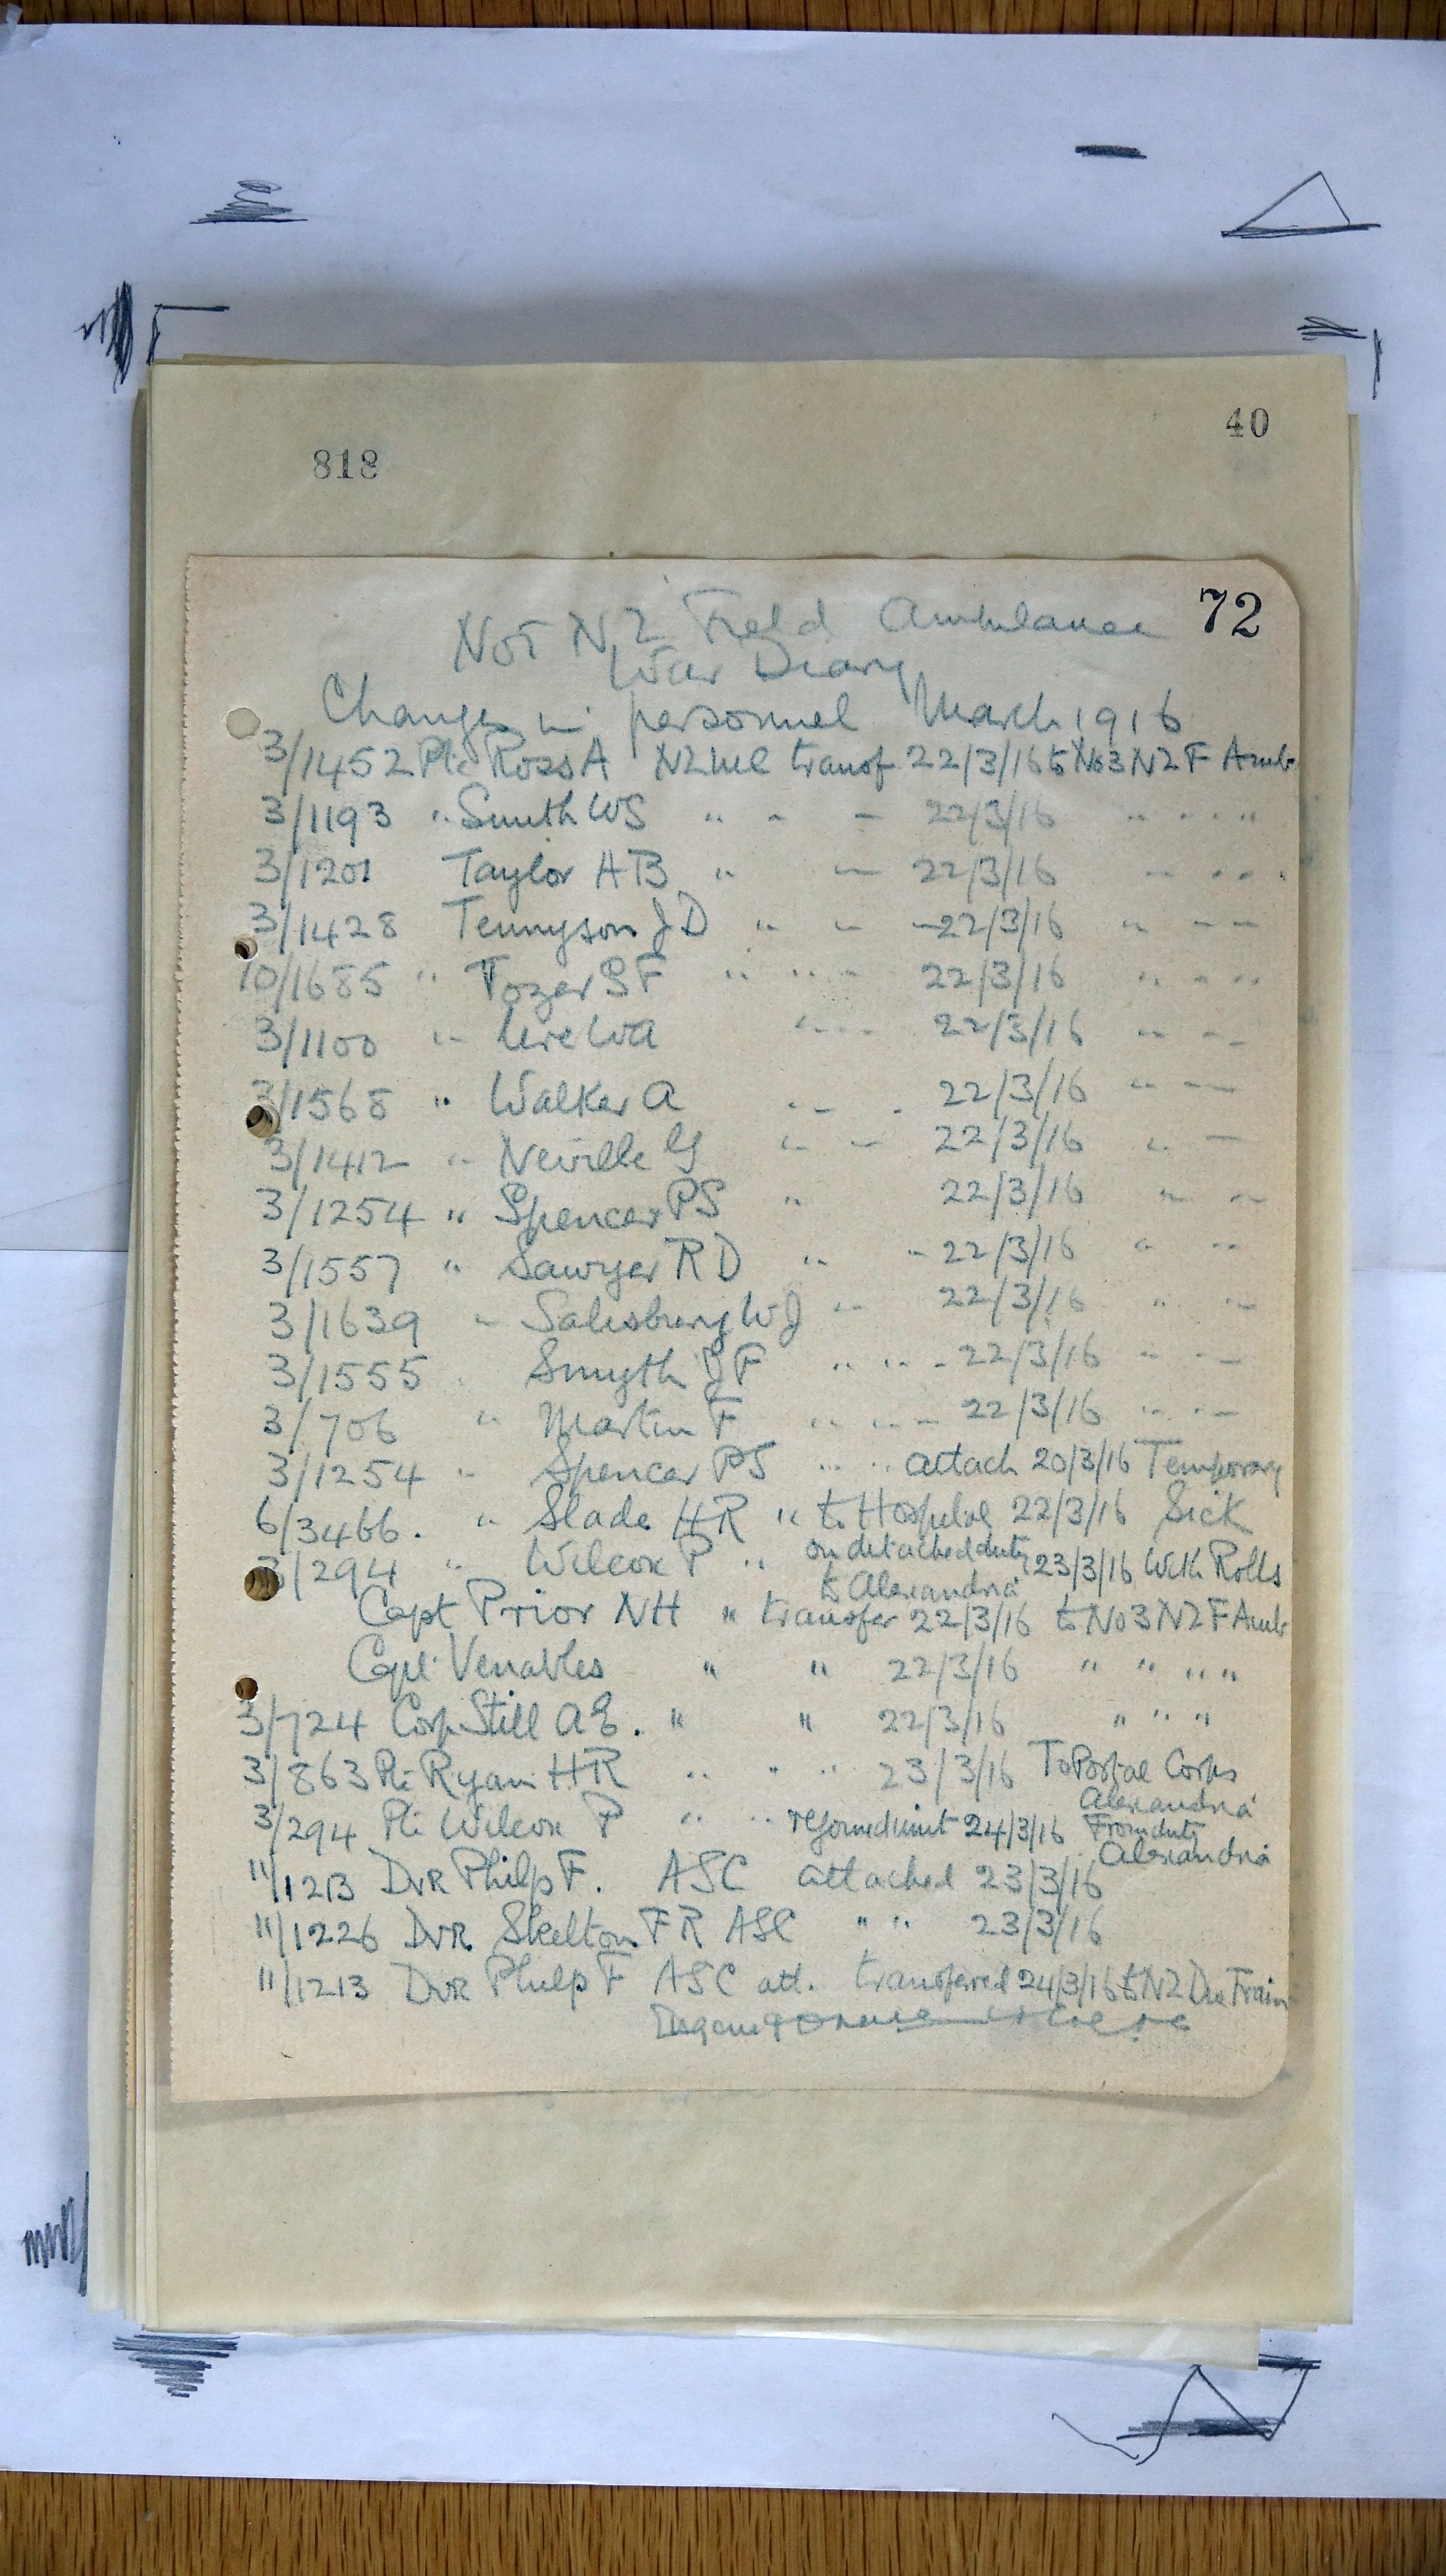 40
818
72
No 1 NZ Field Ambulance
War Diary
Changes in personnel March 1916
3/1452 Pte Ross A NZMC transf 22/3/16 to No3 NZ F Amb
3/1193 " Smith WS " " " 22/3/16 " " " "
3/1201 Taylor HB " " 22/3/16 " " " "
3/1428 Tennyson JD " " " 22/3/16 " " "
10/1685 " Tozer SF " " " " 22/3/16 " " " "
3/1100 " Ure WA " " " 22/3/16 " " "
3/1568 " Walker A " " " 22/3/16 " " "
3/1412 " Neville G " " 22/3/16 " "
3/1254 " Spencer PS " 22/3/16 " "
3/1557 " Sawyer RD " " 22/3/16 " "
3/1639 " Salisbury WJ " 22/3/16 " "
3/1555 " Smyth JF " " " 22/3/16 " " "
3/706 " Martin F " " " 22/3/16 " " "
3/1254 " Spencer PS " " attach 20/3/16 Temporary
6/3466. " Slade HR " to Hospital 22/3/16 Sick
3/294 " Wilcox P " on detached duty 23/3/16 With Rolls
to Alexandria
Capt Prior NH " transfer 22/3/16 to No3 NZ F Amb
Capt Venables " " 22/3/16 " " " "
3/724 Corp Still AE. " " 22/3/16 " " "
3/863 Pte Ryan HR " " " 23/3/16 To Postal Corps
Alexandria
3/294 Pte Wilcox P " " rejoined unit 24/3/16 From duty
Alexandria
11/1213 Dvr Philp F. ASC attached 23/3/16
11/1226 Dvr Skelton FR ASC " " 23/3/16
11/1213 Dvr Philp F ASC att. transferred 24/3/16 to NZ Div Train